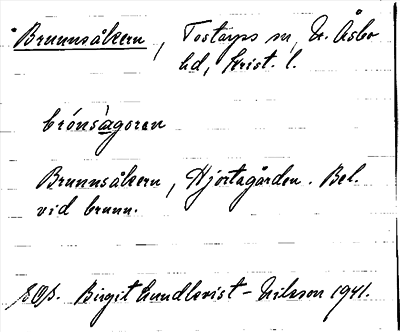 Brunnsåkern, Tostarps sn, N. Åsbo
hd, Krist. l.
brónsàgoren
Brunnsåkern, Hjortagården. Bel.
vid brunn.
SOS. Birgit Lundkvist-Nilsson 1941.